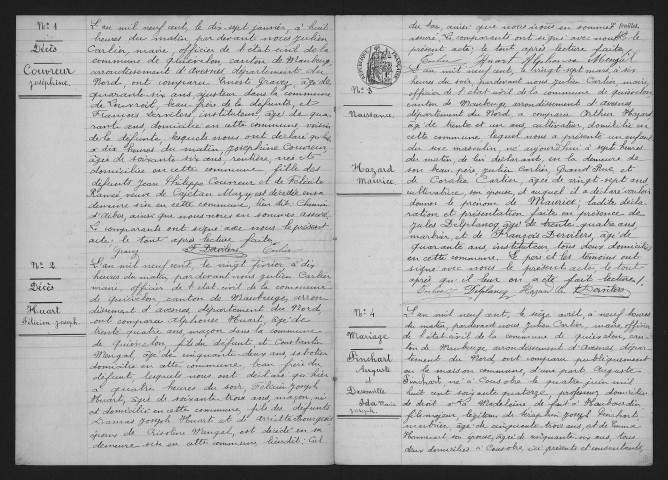 N° 1
Décès
Couvreur
Joséphine
L'an mil neuf cent, le dix sept janvier, à huit
heures du matin par devant nous Julien
Carlier, maire, officier de l'état civil de la
commune de Quiévelon, canton de Maubeuge,
arrondissement d'avesnes département du
Nord ont comparu Ernest Gravez âgé de
quarante six ans, ajusteur dans la commune
de Louvroil, beau frère de la défunte, et
François Derviters, instituteur, âgé de qua-
rante ans domicilié en cette commune, voisin
de la défunte, lesquels nous ont déclaré qu'hier
à dix heures du matin, Joséphine Couvreur
âgée de soixante six ans, rentière, née et
domiciliée en cette commune fille des
défunts Jean Philippe Couvreur et de Félicité
veuve de Cajétan Mary est décédée en sa
demeure sise en cette commune, lieu dit: Chemin
d'Aibes, ainsi que nous nous en sommes assuré.
Les comparants ont signé avec nous le présent
acte; le tout après lecture faite.
Gravez F. Derviters Carlier
N° 2
Décès
Huart
Félicien Joseph.
L'an mil neuf cent, le vingt février à dix
heures du matin par devant nous Julien Carlier
maire, officier de l'état civil de la commune
de Quiévelon, canton de Maubeuge, arron-
dissement d'avesnes, département du Nord
ont comparu Alphonse Huart, âgé de
trente quatre ans, maçon dans la commune
de Quiévelon, fils du défunt et Constantin
Mengal, âgé de cinquante deux ans sabotier
domicilié en cette commune, beau frère du
défunt lesquels nous ont déclaré qu'hier
à quatre heures du soir, Félicien Joseph
Huart, âgé de soixante trois ans, maçon, né
et domicilié en cette commune, fils des défunts
Damas Joseph Huart et de Bourgeois
époux de Mengal, est décédé en sa
demeure sise en cette commune, lieu dit: Cul
du sac, ainsi que nous nous en sommes
assuré. Les comparants ont signé avec nous le
présent acte; le tout après lecture faite.
Carlier Huart Alphonse Mengal
N° 3
Naissance
Hazard
Maurice
L'an mil neuf cent, le vingt sept mars à deux
heures du soir, pardevant nous Julien Carlier, maire,
officier de l'état civil de la commune de Quiévelon,
canton de Maubeuge arrondissement d'avesnes
département du Nord, a comparu Arthur Hazard
âgé de trente et un ans, cultivateur, domicilié en
cette commune lequel nous a présenté un enfant
du sexe masculin, né aujourd'hui à sept heures
du matin, de lui déclarant, en la demeure de
son beau père Julien Carlier, Grand'Rue, et
de Coralie Carlier âgée de vingt sept ans,
cultivatrice, son épouse, et auquel il a déclaré vouloir
donner le prénom de Maurice; ladite décla-
ration et présentation faite en présence de
Jules Delplancq âgé de trente quatre ans,
marbrier, et de François Derviters, âgé de
quarante ans, instituteur tous deux domiciliés
en cette commune. Le père et les témoins ont
signé avec nous le présent acte le tout
après qu'il leur en a été fait lecture.
Carlier Delplancq Hazard Derviters
N° 4
Mariage
Finchart
Auguste
et
Ida Maria
Joseph.
L'an mil neuf cent, le seize avril, à neuf heures
du matin, pardevant nous Julien Carlier maire, officier
de l'état civil de la commune de Quiévelon, can-
ton de Maubeuge arrondissement d'Avesnes, dépar-
tement du Nord ont comparu publiquement
en la maison commune, d'une part Auguste
Finchart, né à Cousolre le quatre juin mil
huit cent soixante quatorze, professeur, domicilié
de droit à
fils majeur légitime de Séraphin Joseph Finchart
marbrier, âgé de cinquante trois ans, et de Emma
son épouse, âgée de cinquante six ans, tous
deux domiciliés à Cousolre, ici présents et consentants,